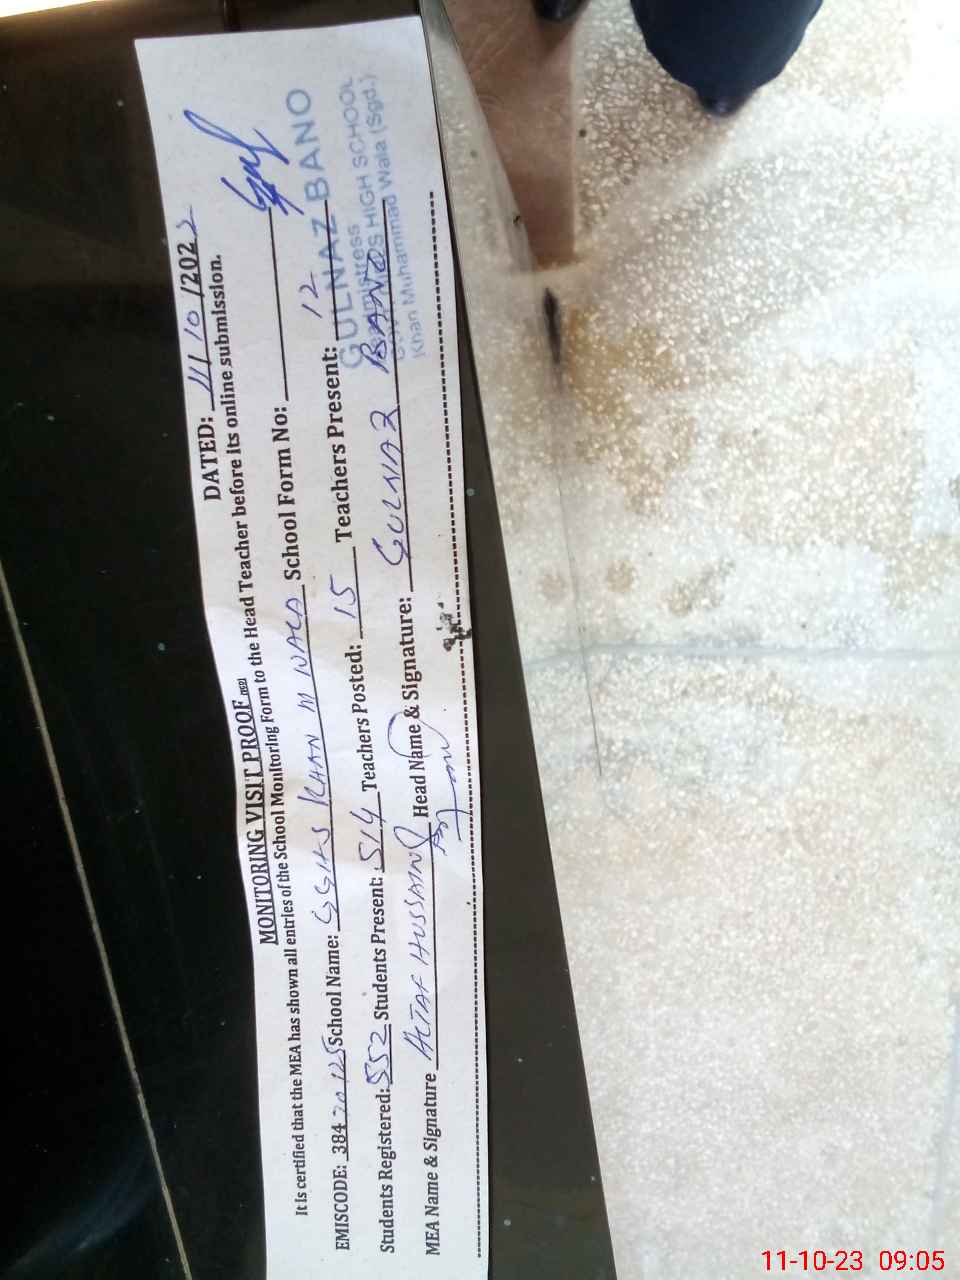 MONITORING VISIT PROOF DATED: 11/10/202
It is certified that the MEA has shown all entries of the School Monitoring Form to the Head Teacher before its online submission.
EMISCODE: 38420125 School Name: GGHS KHAN M WALA School Form No:
Students Registered: 552 Students Present: 514 Teachers Posted: 15 Teachers Present: 12
MEA Name & Signature ALTAF HUSSAIN Head Name & Signature: GULNAZ BANO
GULNAZ BANO
Headmistress
GOVT. GIRLS HIGH SCHOOL
Khan Muhammad Wala (Sgd.)
11-10-23 09:05